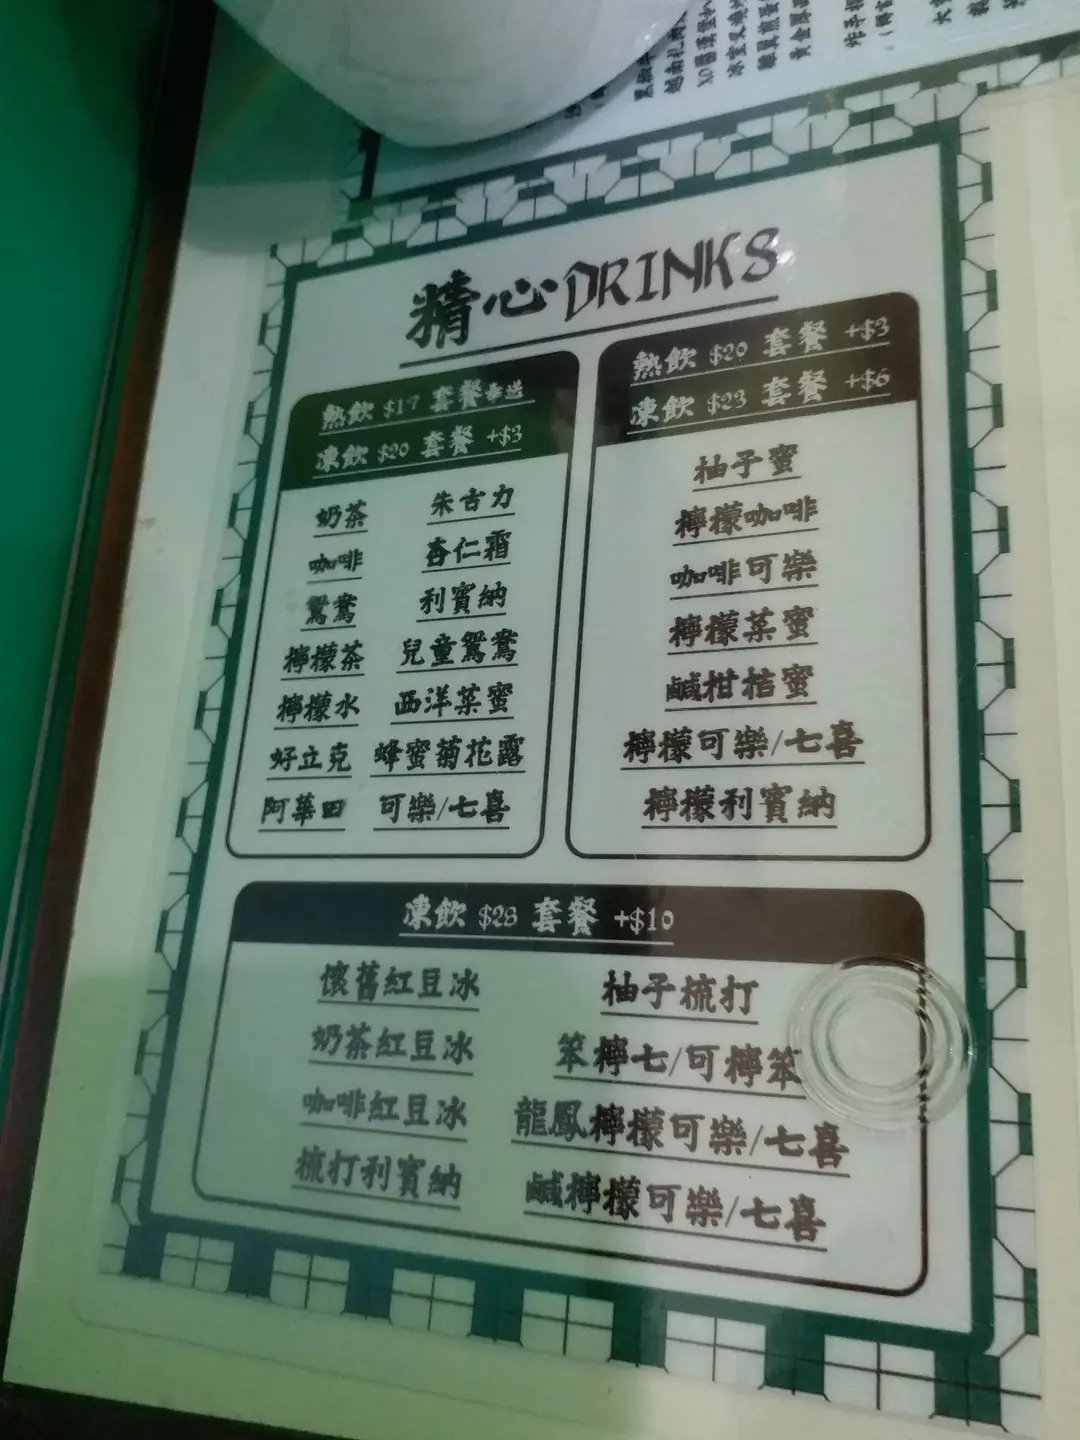 精心DRINKS
熱飲 $17 套餐奉送
凍飲 $20 套餐 +$3
奶茶
咖啡
鴛鴦
檸檬茶
檸檬水
好立克
阿華田
朱古力
杏仁霜
利賓納
兒童鴛鴦
西洋菜蜜
蜂蜜菊花露
可樂/七喜
熱飲 $20 套餐 +$3
凍飲 $23 套餐 +$6
柚子蜜
檸檬咖啡
咖啡可樂
檸檬菜蜜
鹹柑桔蜜
檸檬可樂/七喜
檸檬利賓納
凍飲 $28 套餐 +$10
懷舊紅豆冰
奶茶紅豆冰
咖啡紅豆冰
梳打利賓納
柚子梳打
笨檸七/可檸笨
龍鳳檸檬可樂/七喜
鹹檸檬可樂/七喜